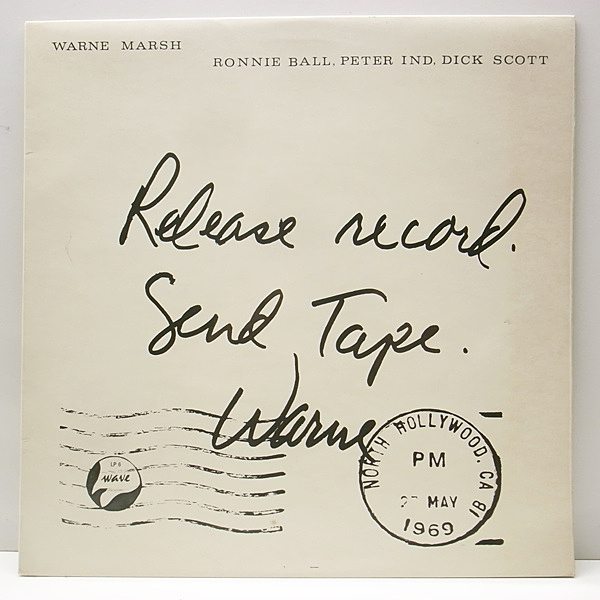 WARNE MARSH
RONNIE BALL, PETER IND, DICK SCOTT
Release record.
Send Tape.
Warne
LP 6
wave
NORTH HOLLYWOOD CA
PM
MAY
1969